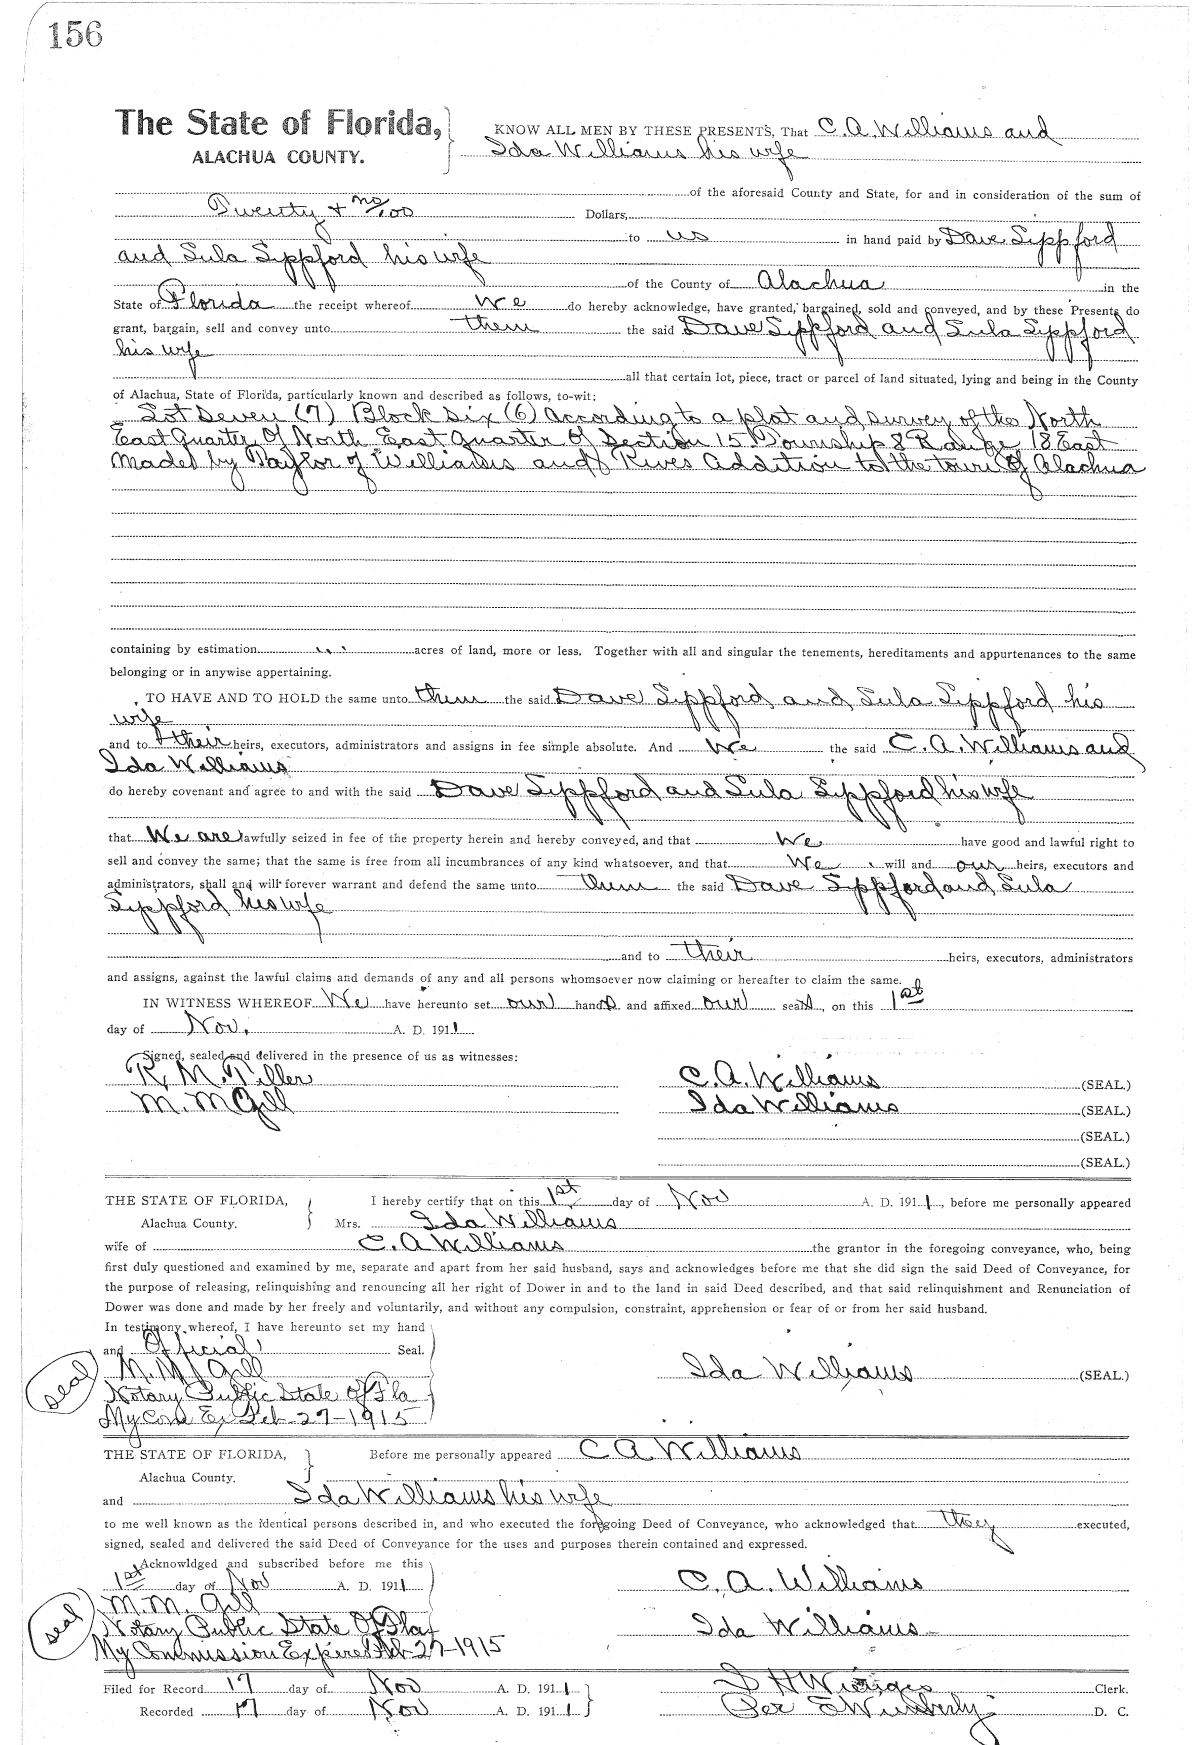 156
The State of Florida,
ALACHUA COUNTY.
KNOW ALL MEN BY THESE PRESENTS, That C. A. Williams and
Ida Williams his wife
of the aforesaid County and State, for and in consideration of the sum of
Twenty + no/100 Dollars,
to us in hand paid by Dave Sippford
and Sula Sippford his wife
of the County of Alachua in the
State of Florida the receipt whereof We do hereby acknowledge, have granted, bargained, sold and conveyed, and by these Presents do
grant, bargain, sell and convey unto them the said Dave Sippford and Sula Sippford
his wife
all that certain lot, piece, tract or parcel of land situated, lying and being in the County
of Alachua, State of Florida, particularly known and described as follows, to-wit:
Lot Seven (7) Block Six (6) according to a plat and survey of the North
East Quarter of North East Quarter of Section 15 Township 8 Range 18 East
made by Taylor of Williams and Rives Addition to the town of Alachua
containing by estimation acres of land, more or less. Together with all and singular the tenements, hereditaments and appurtenances to the same
belonging or in anywise appertaining.
TO HAVE AND TO HOLD the same unto them the said Dave Sippford and Sula Sippford his
wife
and to their heirs, executors, administrators and assigns in fee simple absolute. And We the said C. A. Williams and
Ida Williams
do hereby covenant and agree to and with the said Dave Sippford and Sula Sippford his wife
that We are lawfully seized in fee of the property herein and hereby conveyed, and that We have good and lawful right to
sell and convey the same; that the same is free from all incumbrances of any kind whatsoever, and that We will and our heirs, executors and
administrators, shall and will forever warrant and defend the same unto them the said Dave Sippford and Sula
Sippford his wife
and to their heirs, executors, administrators
and assigns, against the lawful claims and demands of any and all persons whomsoever now claiming or hereafter to claim the same.
IN WITNESS WHEREOF We have hereunto set our hands and affixed our seals, on this 1st
day of Nov. A. D. 1911.
Signed, sealed and delivered in the presence of us as witnesses:
R. M. Tiller C. A. Williams (SEAL.)
M. M Gill Ida Williams (SEAL.)
(SEAL.)
(SEAL.)
THE STATE OF FLORIDA, I hereby certify that on this 1st day of Nov A. D. 1911, before me personally appeared
Alachua County. Mrs. Ida Williams
wife of C. A Williams the grantor in the foregoing conveyance, who, being
first duly questioned and examined by me, separate and apart from her said husband, says and acknowledges before me that she did sign the said Deed of Conveyance, for
the purpose of releasing, relinquishing and renouncing all her right of Dower in and to the land in said Deed described, and that said relinquishment and Renunciation of
Dower was done and made by her freely and voluntarily, and without any compulsion, constraint, apprehension or fear of or from her said husband.
In testimony whereof, I have hereunto set my hand
and Official Seal.
seal M. M Gill Ida Williams (SEAL.)
Notary Public State Of Fla
My Com Ex Feb 27-1915
THE STATE OF FLORIDA, Before me personally appeared C A Williams
Alachua County.
and Ida Williams his wife
to me well known as the identical persons described in, and who executed the foregoing Deed of Conveyance, who acknowledged that they executed,
signed, sealed and delivered the said Deed of Conveyance for the uses and purposes therein contained and expressed.
Acknowldged and subscribed before me this
1st day of Nov A. D. 1911 C. A. Williams
M. M. Gill
seal Notary Public State Of Fla Ida Williams
My Commission Expires Feb 27-1915
Filed for Record 17 day of Nov A. D. 1911 S H Wienges Clerk.
Recorded 17 day of Nov A. D. 1911 Per E Wimberly D. C.